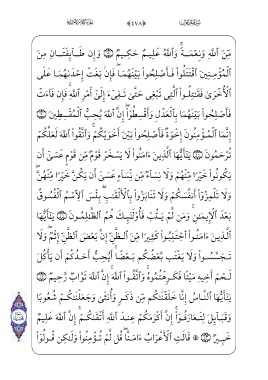 ﴿٤٧٨﴾
مِّنَ ٱللَّهِ وَنِعْمَةً وَٱللَّهُ عَلِيمٌ حَكِيمٌ وَإِن طَآئِفَتَانِ مِنَ
ٱلْمُؤْمِنِينَ ٱقْتَتَلُوا۟ فَأَصْلِحُوا۟ بَيْنَهُمَا فَإِنۢ بَغَتْ إِحْدَىٰهُمَا عَلَى
ٱلْأُخْرَىٰ فَقَٰتِلُوا۟ ٱلَّتِى تَبْغِى حَتَّىٰ تَفِىٓءَ إِلَىٰٓ أَمْرِ ٱللَّهِ فَإِن فَآءَتْ
فَأَصْلِحُوا۟ بَيْنَهُمَا بِٱلْعَدْلِ وَأَقْسِطُوٓا۟ إِنَّ ٱللَّهَ يُحِبُّ ٱلْمُقْسِطِينَ
إِنَّمَا ٱلْمُؤْمِنُونَ إِخْوَةٌ فَأَصْلِحُوا۟ بَيْنَ أَخَوَيْكُمْ وَٱتَّقُوا۟ ٱللَّهَ لَعَلَّكُمْ
تُرْحَمُونَ يَٰٓأَيُّهَا ٱلَّذِينَ ءَامَنُوا۟ لَا يَسْخَرْ قَوْمٌ مِّن قَوْمٍ عَسَىٰٓ أَن
يَكُونُوا۟ خَيْرًا مِّنْهُمْ وَلَا نِسَآءٌ مِّن نِّسَآءٍ عَسَىٰٓ أَن يَكُنَّ خَيْرًا مِّنْهُنَّ
وَلَا تَلْمِزُوٓا۟ أَنفُسَكُمْ وَلَا تَنَابَزُوا۟ بِٱلْأَلْقَٰبِ بِئْسَ ٱلِٱسْمُ ٱلْفُسُوقُ
بَعْدَ ٱلْإِيمَٰنِ وَمَن لَّمْ يَتُبْ فَأُو۟لَٰٓئِكَ هُمُ ٱلظَّٰلِمُونَ يَٰٓأَيُّهَا
ٱلَّذِينَ ءَامَنُوا۟ ٱجْتَنِبُوا۟ كَثِيرًا مِّنَ ٱلظَّنِّ إِنَّ بَعْضَ ٱلظَّنِّ إِثْمٌ وَلَا
تَجَسَّسُوا۟ وَلَا يَغْتَب بَّعْضُكُم بَعْضًا أَيُحِبُّ أَحَدُكُمْ أَن يَأْكُلَ
لَحْمَ أَخِيهِ مَيْتًا فَكَرِهْتُمُوهُ وَٱتَّقُوا۟ ٱللَّهَ إِنَّ ٱللَّهَ تَوَّابٌ رَّحِيمٌ
يَٰٓأَيُّهَا ٱلنَّاسُ إِنَّا خَلَقْنَٰكُم مِّن ذَكَرٍ وَأُنثَىٰ وَجَعَلْنَٰكُمْ شُعُوبًا
وَقَبَآئِلَ لِتَعَارَفُوٓا۟ إِنَّ أَكْرَمَكُمْ عِندَ ٱللَّهِ أَتْقَىٰكُمْ إِنَّ ٱللَّهَ عَلِيمٌ
خَبِيرٌ قَالَتِ ٱلْأَعْرَابُ ءَامَنَّا قُل لَّمْ تُؤْمِنُوا۟ وَلَٰكِن قُولُوٓا۟